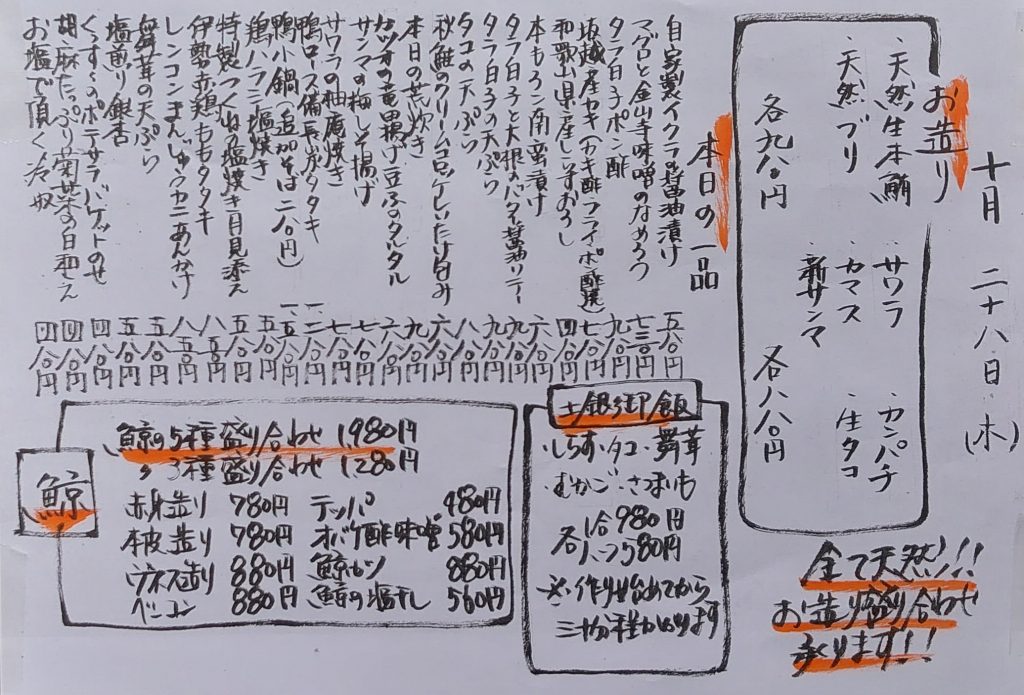 十月 二十八日(木)
お造り
・天然生本鮪
・天然ブリ
各九八〇円
・サワラ
・カマス
・新サンマ
・カンパチ
・生タコ
各八八〇円
全て天然!!
お造り盛り合わせ
承ります!!
本日の一品
自家製イクラの醤油漬け 五八〇円
マグロと金山寺味噌のなめろう 七三〇円
タラ白子ポン酢 九八〇円
坂越産カキ(カキ酢・フライ・ポン酢焼) 七八〇円
和歌山県産しらすおろし 四八〇円
本もろこ南蛮漬け 六八〇円
タラ白子と大根のバター醤油ソテー 九八〇円
タラ白子の天ぷら 九八〇円
タコの天ぷら 八八〇円
秋鮭のクリームコロッケ いたり白み 六八〇円
本日の荒炊き 九八〇円
カツオの竜田揚げ 豆ふのタルタル 六八〇円
サンマの梅しそ揚げ 七八〇円
サワラの柚庵焼き 七八〇円
鴨ロース備長炭タタキ 一二八〇円
鴨小鍋(追加そば 二八〇円) 一五八〇円
鶏ハラミ塩焼き 五八〇円
特製つくね 塩焼き 月見添え 五八〇円
伊勢赤鶏ももタタキ 八五〇円
レンコンまんじゅう カニあんかけ 八五〇円
舞茸の天ぷら 五八〇円
塩煎り銀杏 五八〇円
くずし〜のポテサラ バゲットのせ 四八〇円
胡麻たっぷり菊菜の白和え 四八〇円
お塩で頂く冷奴 四八〇円
土鍋御飯
・しらす・タコ・舞茸
・むかご・さつまいも
各一合 980円
ハーフ 580円
※作り始めてから
三十分程かかります
鯨
鯨の5種盛り合わせ 1,980円
〃 3種盛り合わせ 1,280円
赤身造り 780円 テッパ 480円
本皮造り 780円 オバケ酢味噌 580円
ウネス造り 880円 鯨カツ 880円
ベーコン 880円 鯨の塩干し 560円